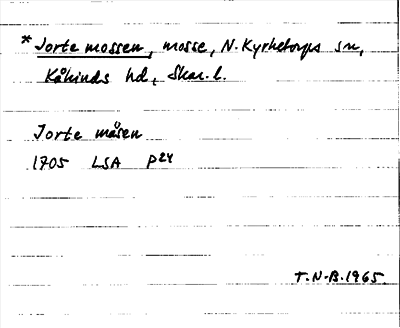 * Jorte mossen, mosse, N. Kyrketorps sn,
Kåkinds hd, Skar. l.
Jorte måsen
1705 LSA P24
T.N-B. 1965